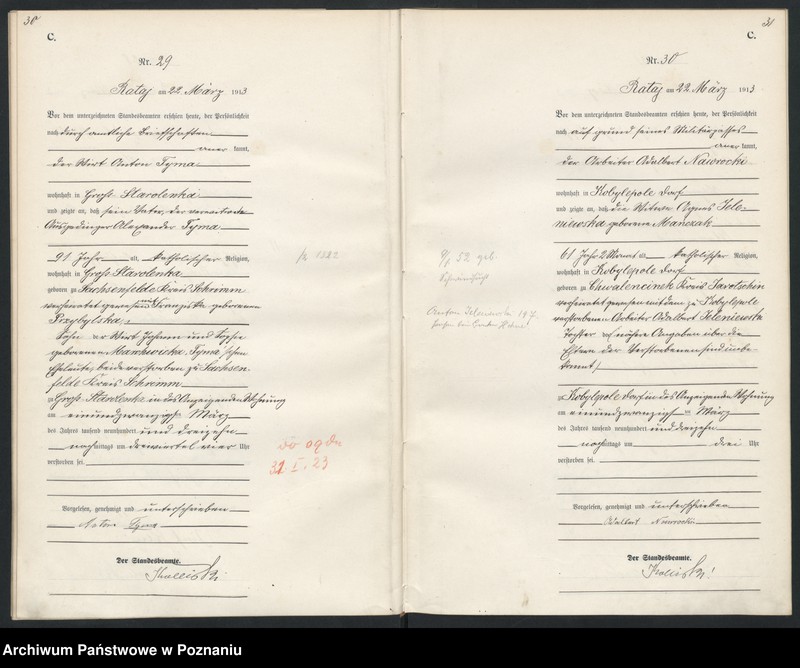 30
C.
Nr. 29
Rataj am 22. März 1913
Vor dem unterzeichneten Standesbeamten erschien heute, der Persönlichkeit
nach durch amtliche Briefschaften
aner kannt,
der Wirt Anton Tyma
wohnhaft in Groß Starolenka
und zeigte an, daß sein Vater, der verwitwete
Ausgedinger Alexander Tyma
91 Jahr alt, katholischer Religion,
wohnhaft in Groß Starolenka
geboren zu Sachsenfelde Kreis Schrimm
verheiratet gewesen mit Franziska geborenen
Przybylska,
Sohn der Wirt Johann und Sophie
geborenen Tyma'schen
Eheleute, beide verstorben zu Sachsen-
felde Kreis Schrimm
zu Groß Starolenka in des Anzeigenden Wohnung
am einundzwanzigsten März
des Jahres tausend neunhundert und dreizehn
nachmittags um dreiviertel vier Uhr
verstorben sei.
Vorgelesen, genehmigt und unterschrieben
Tyma
Der Standesbeamte.
1882
31
C.
Nr. 30
Rataj am 22. März 1913
Vor dem unterzeichneten Standesbeamten erschien heute, der Persönlichkeit
nach auf grund seines Militärpasses
aner kannt,
der Arbeiter Adalbert Nawrocki
wohnhaft in Kobylepole Dorf
und zeigte an, daß die Witwe Agnes Jele-
niewska geborene Mańczak
61 Jahr 2 Monat alt, katholischer Religion,
wohnhaft in Kobylepole Dorf
geboren zu Chwalencinek Kreis Jarotschin
verheiratet gewesen mit dem zu Kobylepole
verstorbenen Arbeiter Adalbert Jeleniewski
Tochter (nähere Angaben über die
Eltern der Verstorbenen sind unbe-
kannt)
zu Kobylepole Dorf in des Anzeigenden Wohnung
am einundzwanzigsten März
des Jahres tausend neunhundert und dreizehn
nachmittags um drei Uhr
verstorben sei.
Vorgelesen, genehmigt und unterschrieben
Adalbert Nawrocki
Der Standesbeamte.
Archiwum Państwowe w Poznaniu